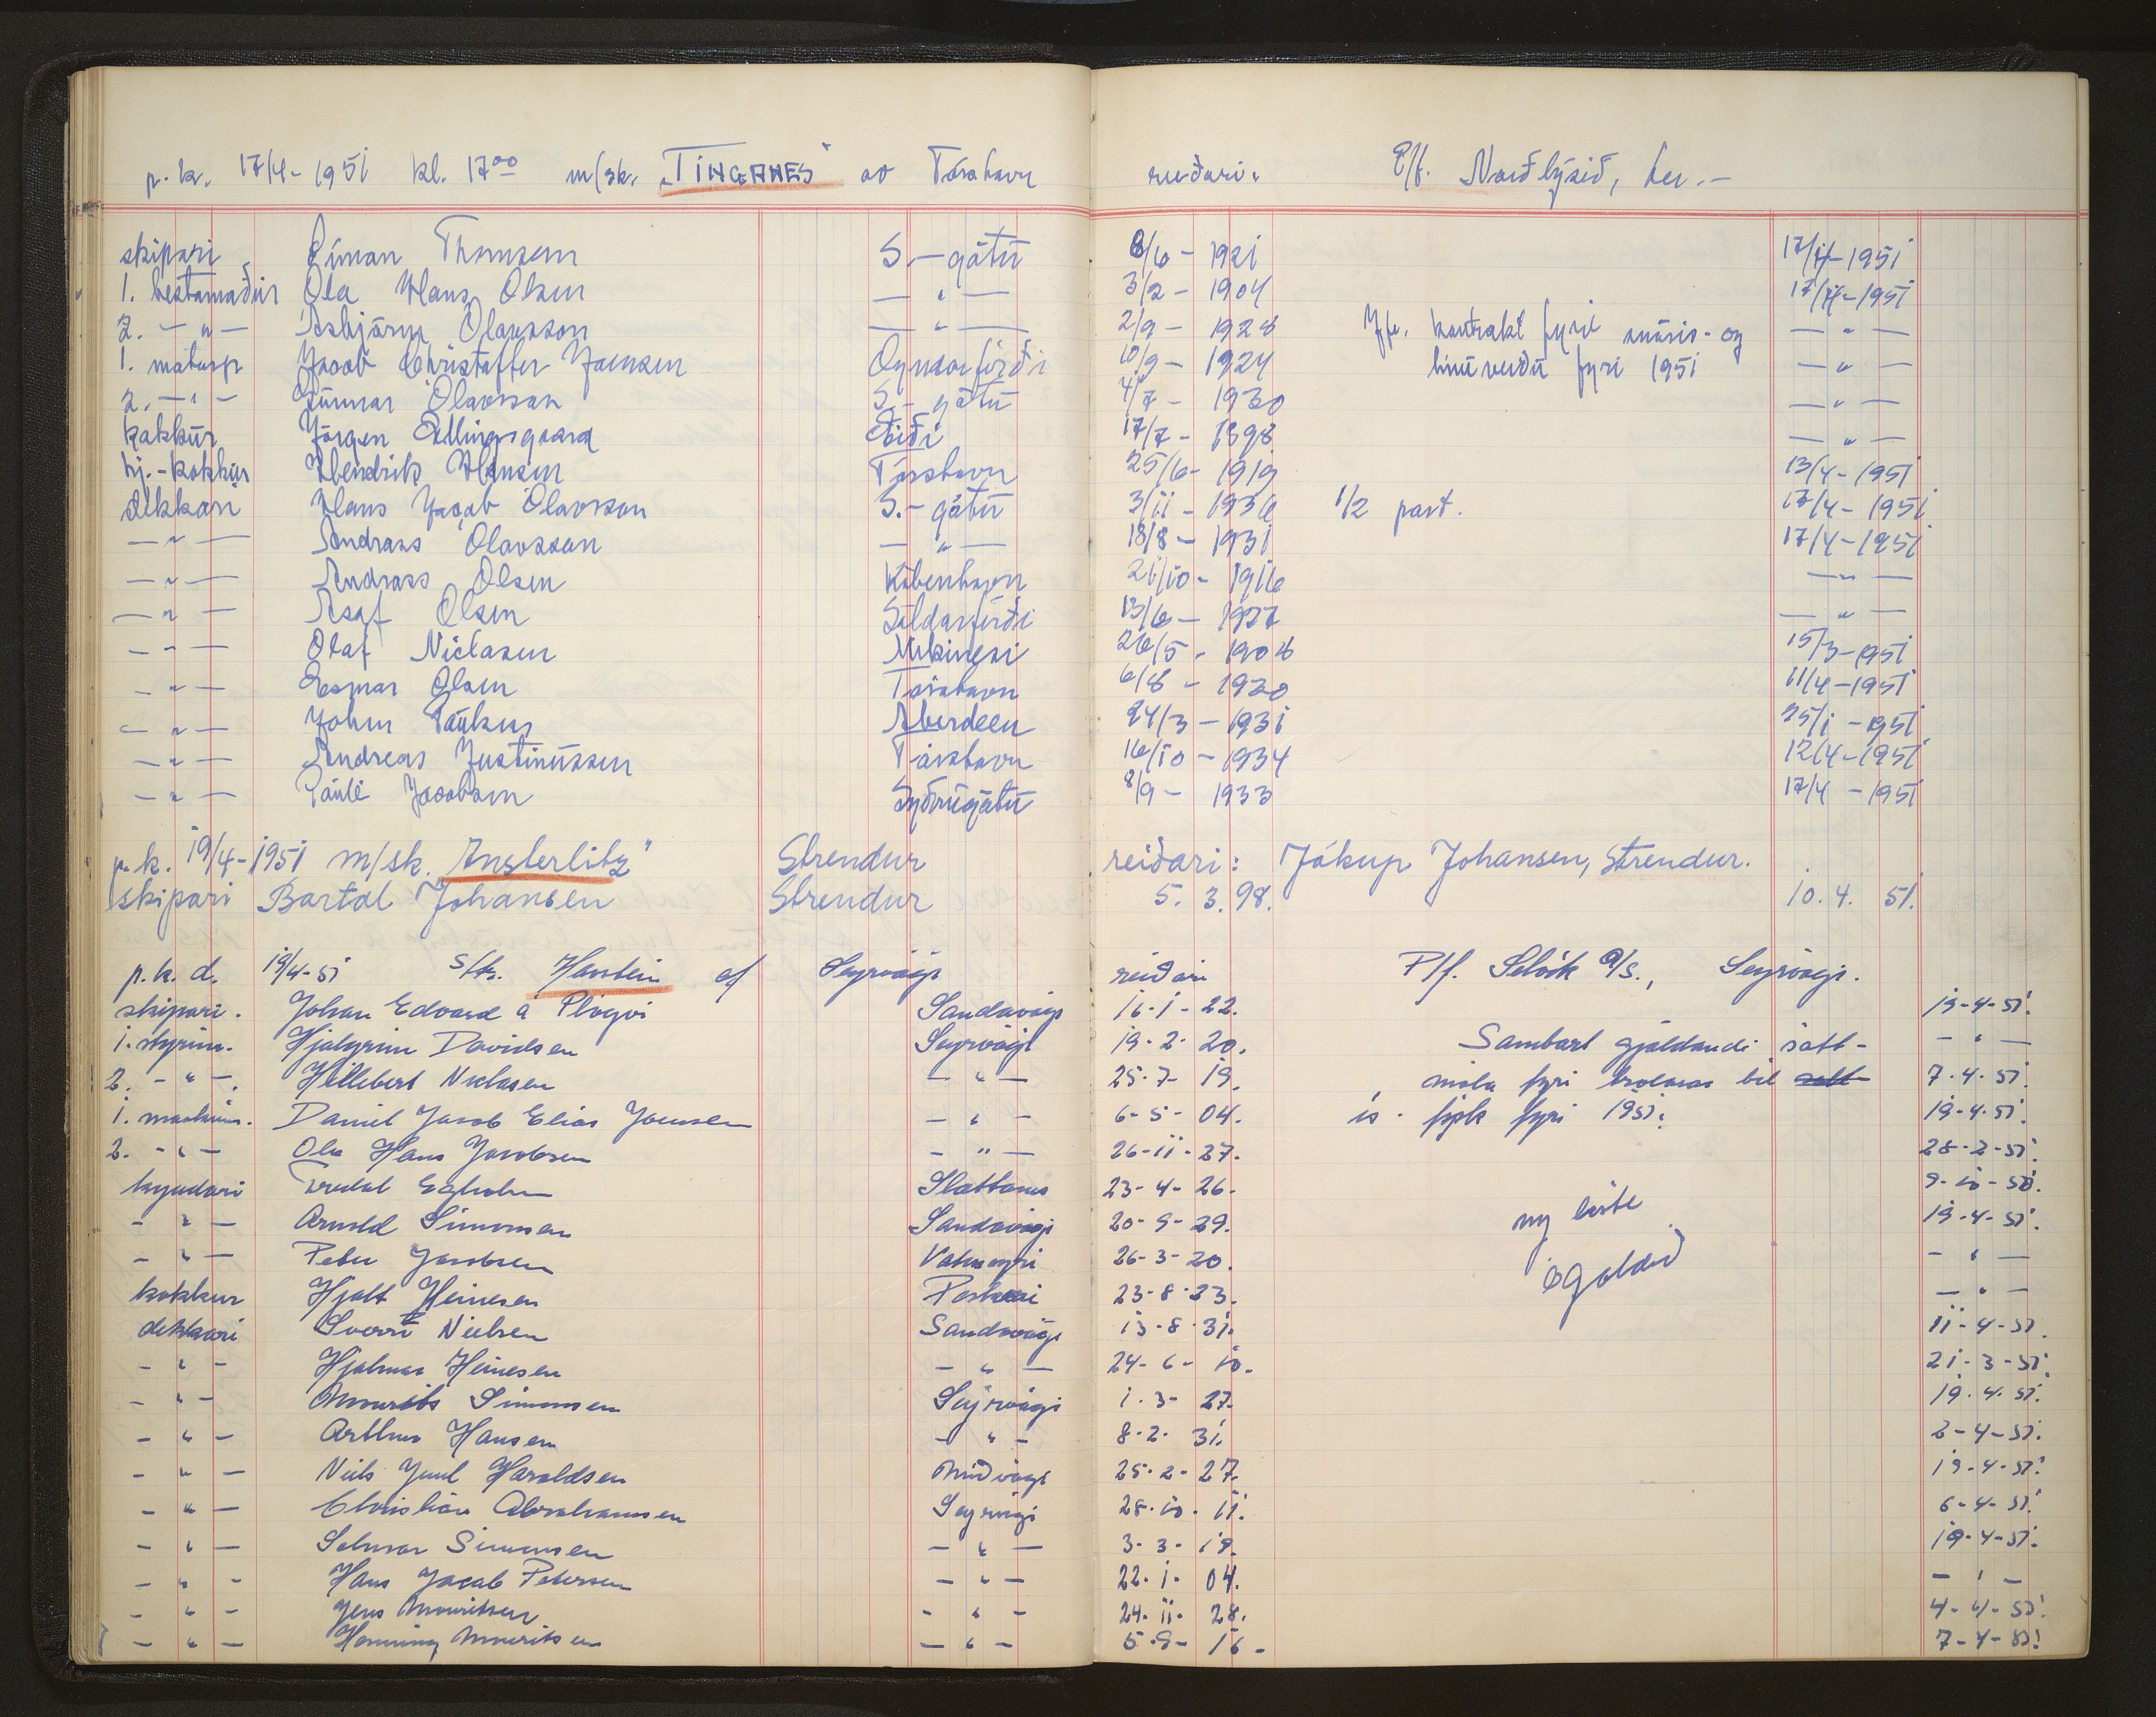 p.k. 17/4-1951 kl. 17⁰⁰ m/sk. „TINGANES" av Tórshavn reiðari: P/f. Norðlýsið, her.-
skipari Síman Thomsen S.-gøtu 8/6 - 1921 17/4-1951
1. bestamaður Óla Hans Olsen — " — 3/2 - 1904 17/4-1951
2. — " — Asbjørn Olavsson — " — 2/9 - 1928 — " —
Jfr. kontrakt fyri snøris- og
1. matusp Jacob Christoffer Joensen Oyndarfirði 10/9 - 1924 — " —
línuveiðu fyri 1951
2. — " — Gunnar Olavsson S.-gøtu 4/7 - 1930 — " —
kokkur Jørgen Ellingsgaard Eiði 17/7 - 1898 — " —
hj.-kokkur Hendrik Hansen Tórshavn 25/6- 1919 13/4-1951
dekkari Hans Jacob Olavsson S.-gøtu 3/11 - 1936 1/2 part. 17/4-1951
— " — Andrass Olavsson — " — 18/8 - 1931 17/4-1951
— " — Andrass Olsen København 21/10 - 1916 — " —
— " — Asaf Olsen Søldarfirði 13/6 - 1927 — " —
— " — Olaf Niclasen Mikinesi 26/5 - 1908 15/3-1951
— " — Esmar Olsen Tórshavn 6/8 - 1920 11/4-1951
— " — John Paulsen Aberdeen 24/3 - 1931 25/1-1951
— " — Andreas Justinussen Tórshavn 16/10 - 1934 12/4-1951
— " — Páuli Jacobsen Syðrugøtu 8/9 - 1933 17/4-1951
p.k. 19/4-1951 m/sk. „Austerlitz" Strendur reiðari: Jákup Johansen, Strendur.
skipari Bartal Johansen Strendur 5. 3. 98. 10. 4. 51.
p.k.d. 19/4-51 s/tr. Havstein af Sørvági reiðari P/f. Selvík a/s., Sørvági.
skipari. Johan Edvard á Plógvi Sandavági 16-1-22. 19-4-51.
1. styrim. Hjalgrim Davidsen Sørvági 19-2-20. — " —
Sambart gjaldandi sátt-
2. — " — Hillebert Niclasen — " — 25-7-19. 7-4-51.
mála fyri trolarar til
1. maskinm. Daniel Jacob Elias Joensen — " — 6-5-04. 19-4-51.
ís-fisk fyri 1951.
2. — " — Ola Hans Jacobsen — " — 26-11-27. 28-2-51.
kyndari Egholm 23-4-26. 9-10-50.
— " — Arnold Simonsen Sandavági 20-9-29. 19-4-51.
ny liste
— " — Peter Jacobsen Vatnsoyri 26-3-20. — " —
ógoldið
kokkur Hjalt Heinesen 23-8-23. — " —
dekkari Sverri Nielsen Sandavági 13-8-31. 11-4-51.
— " — Hjalmar Heinesen — " — 24-6-10. 21-3-51.
— " — Mourits Simonsen Sørvági 1-3-27. 19-4-51.
— " — Arthur Hansen — " — 8-2-31. 2-4-51.
— " — Niels Juul Haraldsen Miðvági 25-2-27. 19-4-51.
— " — Christian Abrahamsen Sørvági 28-10-11. 6-4-51.
— " — Salmar Simonsen — " — 3-3-19. 19-4-51.
— " — Hans Jacob Petersen — " — 22-1-04. — " —
— " — Jens Mouritsen — " — 24-11-28. 4-4-51.
— " — Henning Mouritsen — " — 5-9-16. 7-4-51.